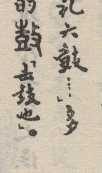 礼大鼓……」多
的鼓「去鼓也」。